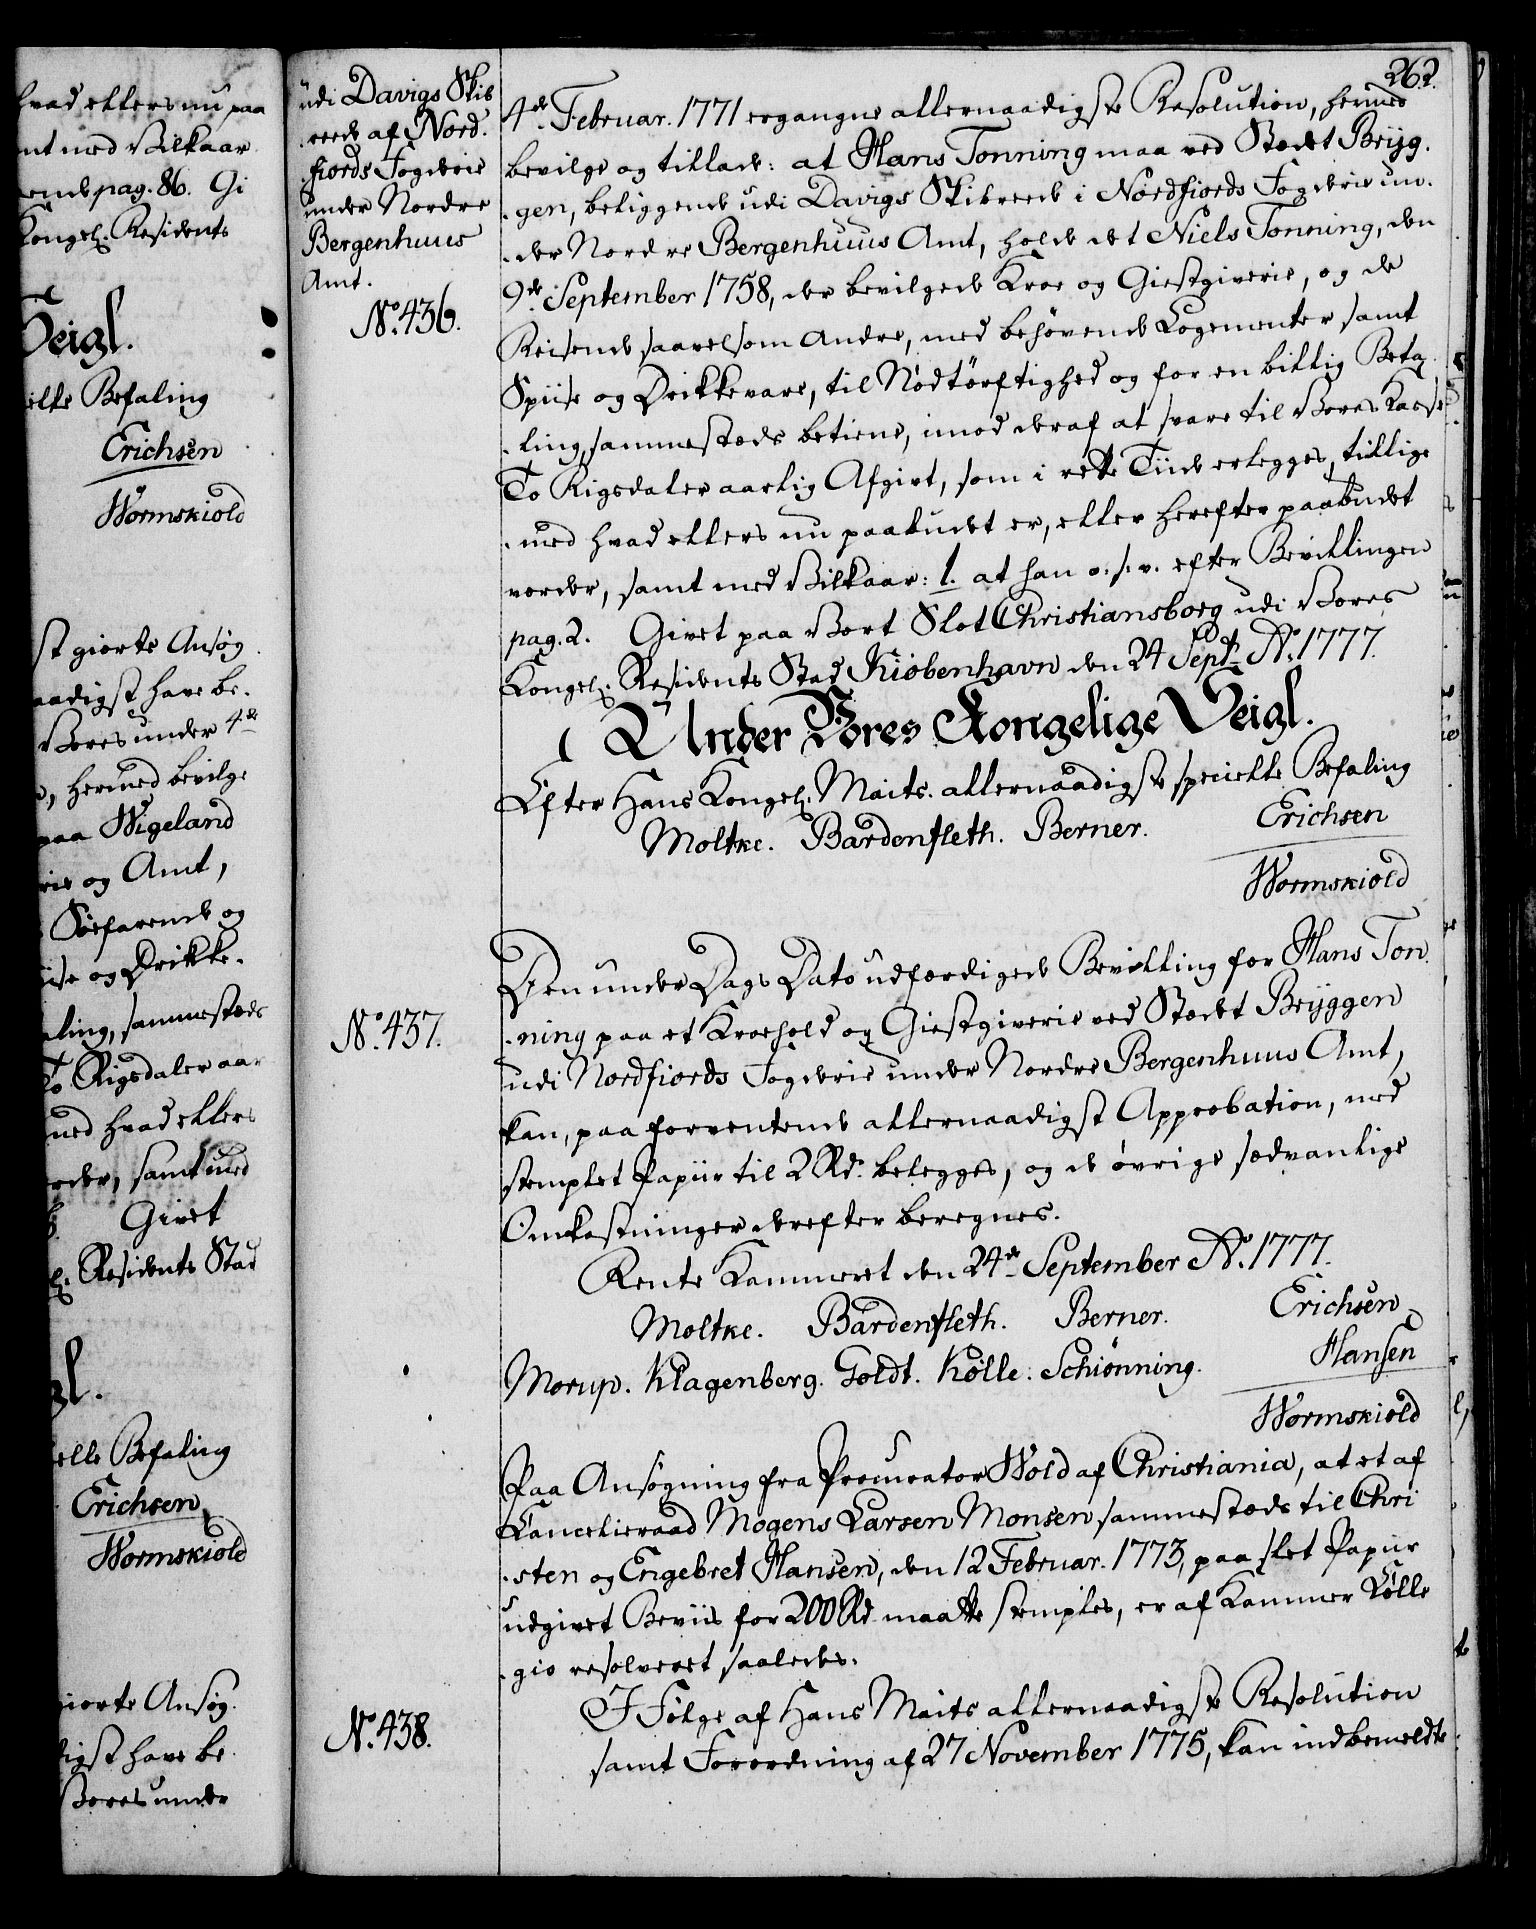 hvad ellers nu paa
nt med Vilkaar
ende pag. 86. Gi
Kongel. Residents
Seigl.
ielle Befaling
Erichsen
Wormskiold
st giorte Ansøg
aadigst have be-
Vores under 4de
hermed bevilge
paa Wigeland
rie og Amt,
Søefarende og
ise og Drikke-
aling, sammesteds
To Rigsdaler aar
med hvad ellers
order, samt med
Givet
l. Residents Stad
gl.
ielle Befaling
Erichsen
Wormskiold
giorte Ansøg
digst have be
Vores under
udi Davigs Skib
reede af Nord-
fiords Fogderie
under Nordre
Bergenhuus
Amt.
No. 436.
262.
4de Februar. 1771 ergangne allernaadigste Resolution, hermed
bevilge og tillade: at Hans Tonning maa ved Stedet Bryg-
-gen, beliggende udi Davigs Skibreede i Nordfiords Fogderie un-
-der Nordre Bergenhuus Amt, holde det Niels Tonning, den
9de September 1758, der bevilgede Kroe og Giestgiverie, og de
Reisende saavelsom andre, med behøvende Logementer samt
Spiise og Drikkevare, til Nødtørftighed og for en billig Beta-
-ling, sammesteds betiene, imod deraf at svare til Vores Kasse
To Rigsdaler aarlig Afgivt, som i rette Tiide erlegges, tillige
-med hvad ellers nu paabudet er, eller herefter paabudet
vorder, samt med Vilkaar: 1. at han o. s. v. efter Bevillingen
pag. 2. Givet paa Vort Slot Christiansborg udi Vores
Kongel. Residents Stad Kiøbenhavn den 24 Sept. Ao. 1777.
Under Vores Kongelige Seigl.
Efter Hans Kongel. Maits. allernaadigste specielle Befaling
Moltke. Bardenfleth. Berner. Erichsen
Wormskiold
No. 437.
Den under Dags Dato udfærdigede Bevilling for Hans Ton-
-ning paa et Kroehold og Giestgiverie ved Stedet Bryggen
udi Nordfiords Fogderie under Nordre Bergenhuus Amt,
kan, paa forventende allernaadigst Approbation, med
stemplet Papiir til 2 Rd. belegges, og de øvrige sædvanlige
Omkostninger derefter beregnes.
Rente Kammeret den 24de September Ao. 1777.
Moltke. Bardenfleth. Berner. Erichsen
Morup. Klagenberg. Goldt. Kølle. Schiønning. Hansen
Wormskiold
Paa Ansøgning fra Procurator Wold af Christiania, at et af
Cancelieraad Mogens Larsen Monsen sammesteds til Chri
-sten og Engebret Hansen, den 12 Februar. 1773, paa slet Papiir
udgivet Beviis for 200 Rd. maatte stemples, er af Kammer Colle
-gio resolveret saaledes.
No. 438.
I Følge af Hans Maits allernaadigste Resolution
samt Forordning af 27 November 1775, kan indbemeldte